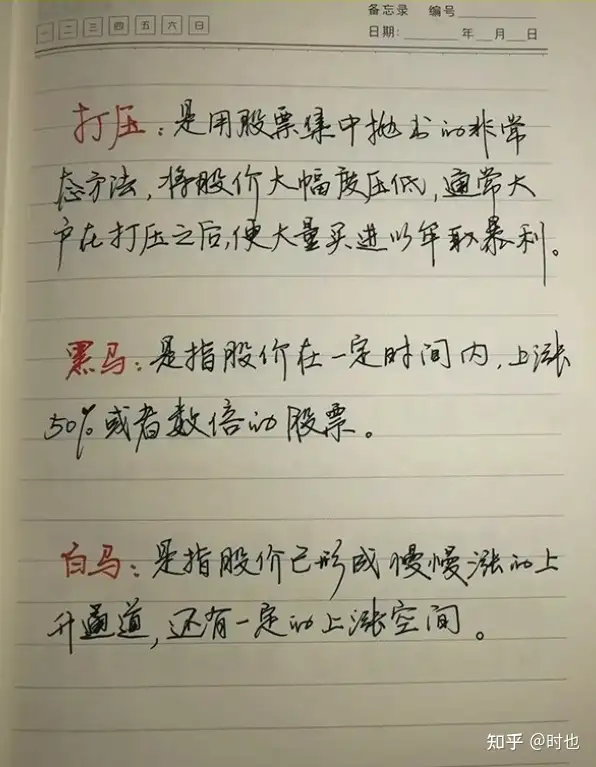 备忘录 编号
一 二 三 四 五 六 日
日期: 年 月 日
打压：是用股票集中抛出的非常
态方法，将股价大幅度压低，通常大
户在打压之后，便大量买进以牟取暴利。
黑马：是指股价在一定时间内，上涨
50%或者数倍的股票。
白马：是指股价已形成慢慢涨的上
升通道，还有一定的上涨空间。
知乎 @时也